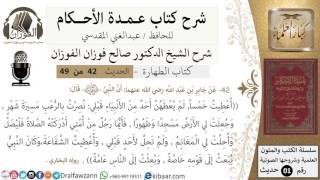 شرح كتاب عمدة الأحكام
للحافظ / عبدالغني المقدسي
شرح الشيخ الدكتور صالح فوزان الفوزان
كتاب الطهارة - الحديث 42 من 49
42- عَنْ جَابِرِ بْنِ عَبْدِ اللهِ رضي الله عنهما أَنَّ النَّبِيَّ ﷺ، قَالَ:
((أُعْطِيتُ خَمْساً، لَمْ يُعْطَهُنَّ أَحَدٌ مِنْ الأَنْبِيَاءِ قَبْلِي: نُصِرْتُ بِالرُّعْبِ مَسِيرَةَ شَهْرٍ،
وَجُعِلَتْ لِي الأَرْضُ مَسْجِداً وَطَهُوراً، فَأَيُّمَا رَجُلٍ مِنْ أُمَّتِي أَدْرَكَتْهُ الصَّلاةُ فَلْيُصَلِّ
وَأُحِلَّتْ لِي الْمَغَانِمُ، وَلَمْ تَحِلَّ لأَحَدٍ قَبْلِي، وَأُعْطِيتُ الشَّفَاعَةَ، وَكَانَ النَّبِيُّ
يُبْعَثُ إلَى قَوْمِهِ خَاصَّةً، وَبُعِثْتُ إلَى النَّاسِ عَامَّةً)). رواه البخاري.
الفوزان
@Dralfawzann
+962 79 119 3511
kibaar.com
سلسلة الكتب والمتون
العلمية وشروحها الصوتية
رقم 01 حديث